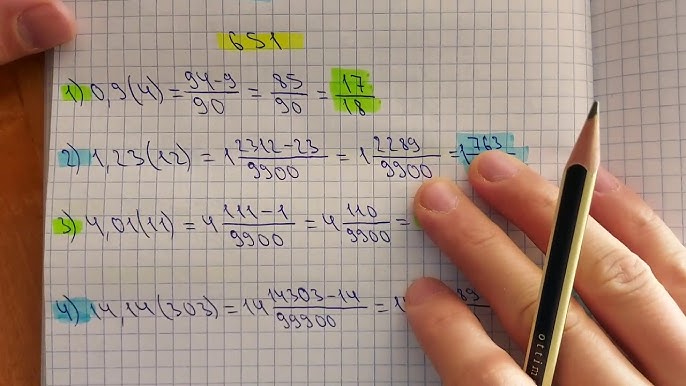 651
1) 0,9(4) = 94-9/90 = 85/90 = 17/18
2) 1,23(12) = 1 2312-23/9900 = 1 2289/9900 = 1 763
3) 4,01(11) = 4 111-1/9900 = 4 110/9900 =
4) 14,14(303) = 14 14303-14/99900 = 1 89
ottim